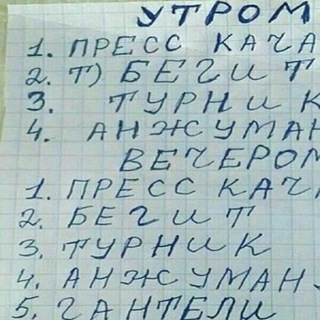 УТРОМ
1. ПРЕСС КАЧА
2. Т) БЕГИТ
3. ТУРНИК
4. АНЖУМАН
ВЕЧЕРОМ
1. ПРЕСС КАЧ
2. БЕГИТ
3. ТУРНИК
4. АНЖУМАН
5. ГАНТЕЛИ